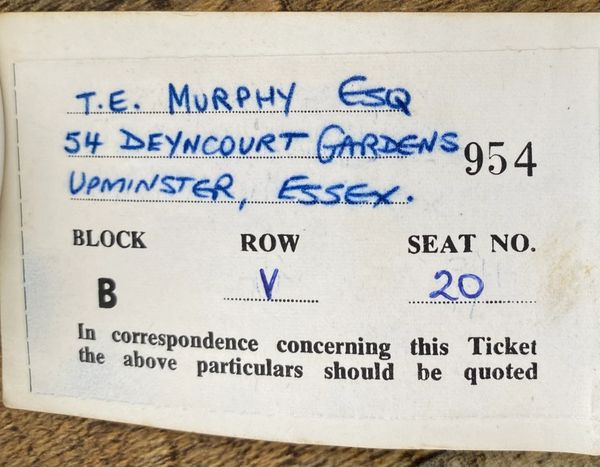 T.E. MURPHY ESQ
54 DEYNCOURT GARDENS
954
UPMINSTER, ESSEX.
BLOCK ROW SEAT NO.
B V 20
In correspondence concerning this Ticket
the above particulars should be quoted